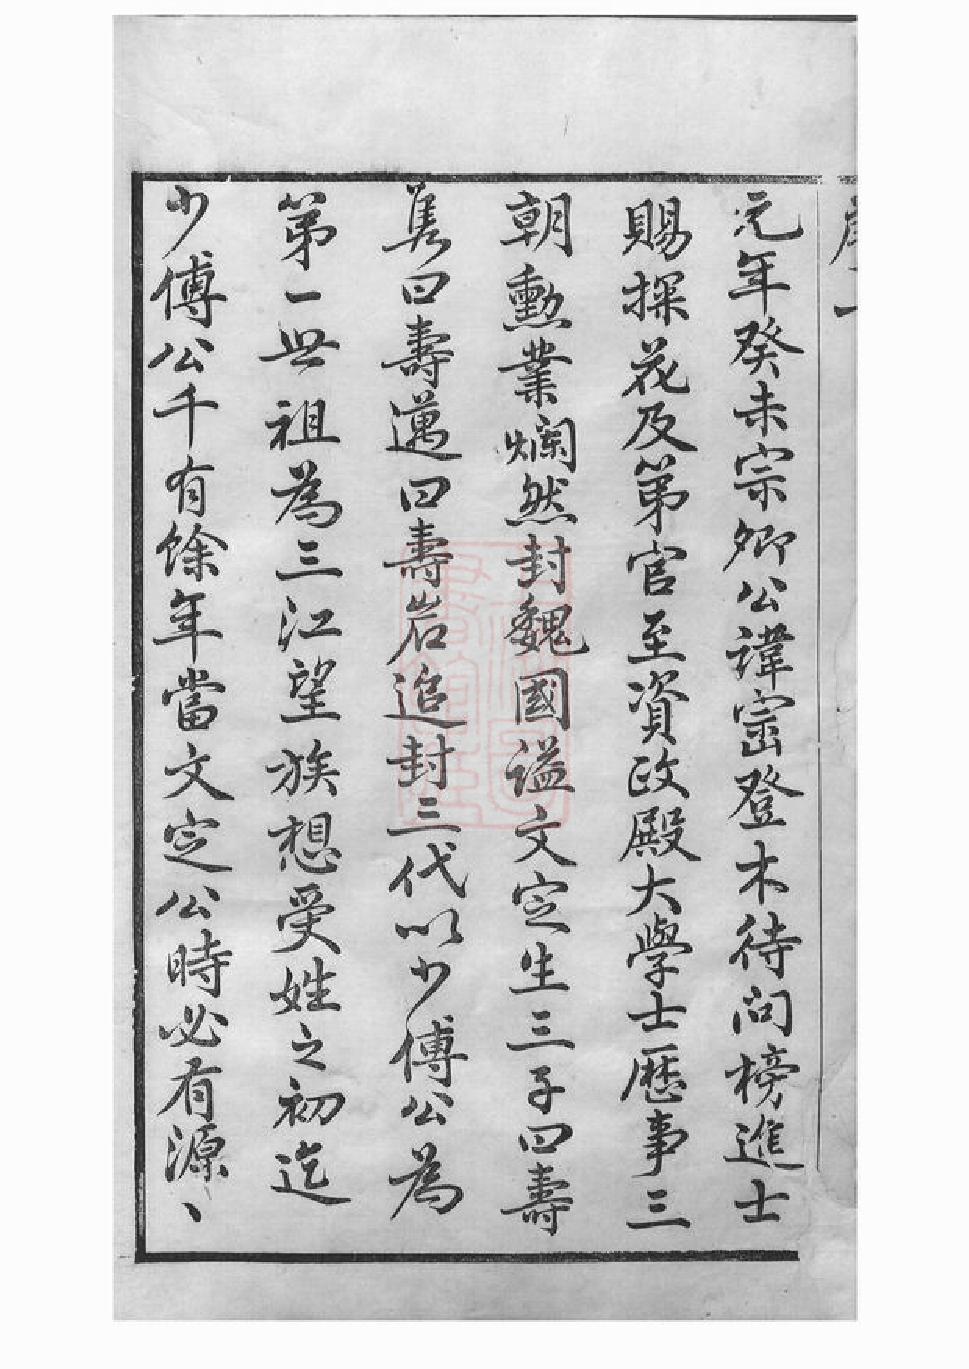 元年癸未宗卿公諱崈登木待問榜進士
賜探花及第官至資政殿大學士歷事三
朝勳業爛然封魏國謚文定生三子曰壽
隽曰壽邁曰壽岩追封三代以少傅公為
第一世祖為三江望族想受姓之初迄
少傅公千有餘年當文定公時必有源〻